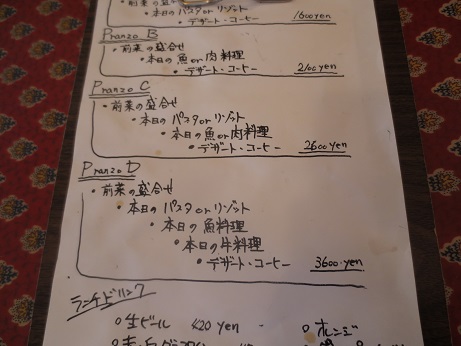 ・本日のパスタorリゾット
・デザート・コーヒー 1600yen
Pranzo B
・前菜の盛合せ
・本日の魚or肉料理
・デザート・コーヒー 2100yen
Pranzo C
・前菜の盛合せ
・本日のパスタorリゾット
・本日の魚or肉料理
・デザート・コーヒー 2600yen
Pranzo D
・前菜の盛合せ
・本日のパスタorリゾット
・本日の魚料理
・本日の牛料理
・デザート・コーヒー 3600-yen
ランチドリンク
○生ビール 420yen ・ ○オレンジ